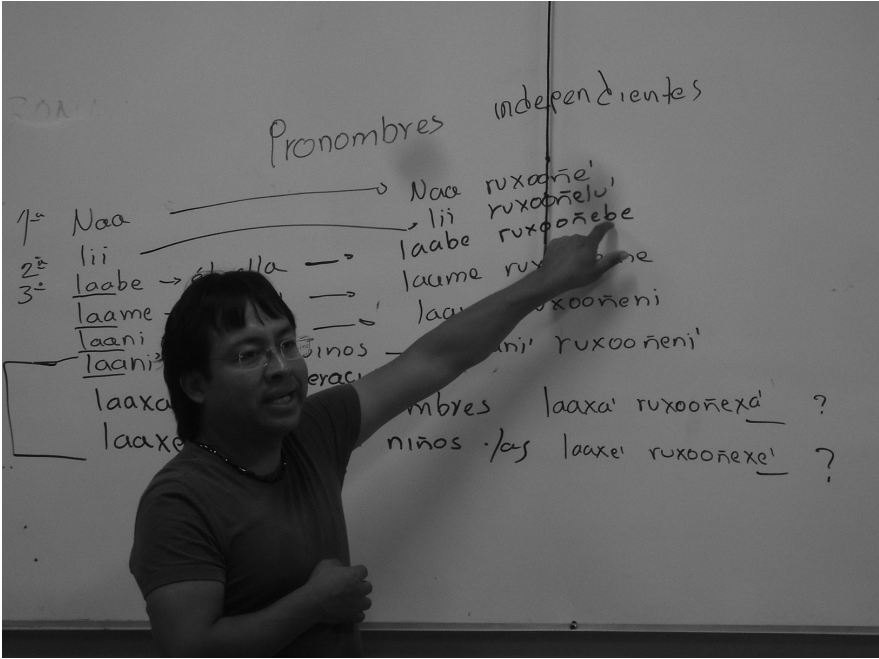 Pronombres independientes
1ª Naa → Naa ruxooñe'
2ª lii → lii ruxooñelu'
3ª laabe → él/ella → laabe ruxooñebe
laame → → laame
laani → ruxooñeni
laani' → ruxooñeni'
laaxa mbres laaxa' ruxooñexa' ?
laaxe niños /las laaxe' ruxooñexe' ?